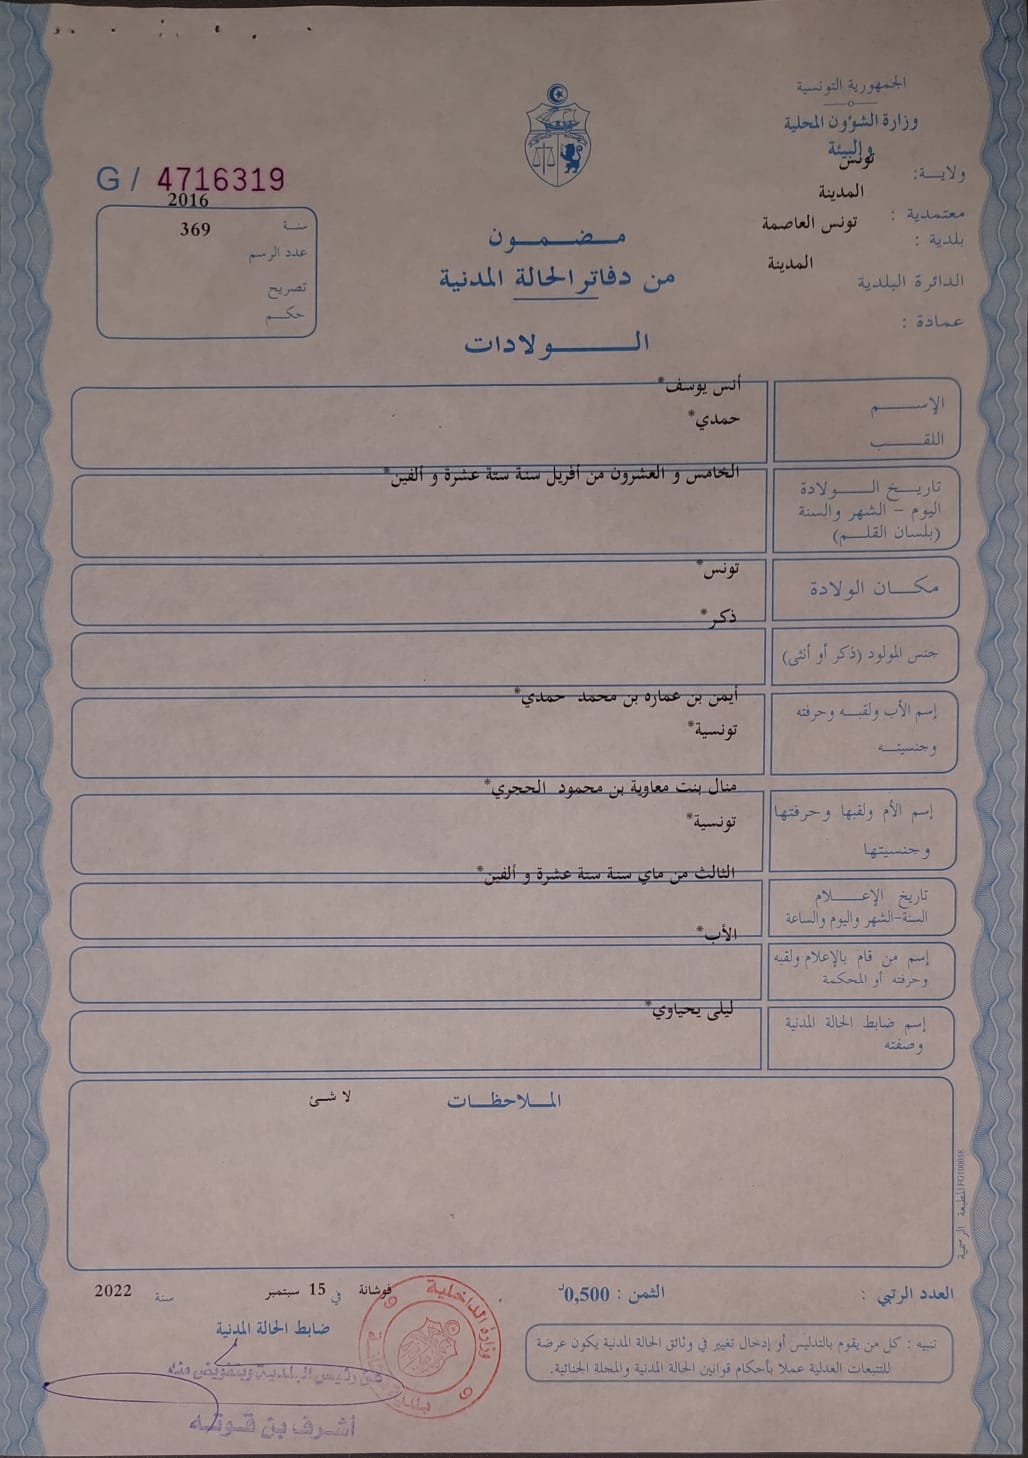 الجمهورية التونسية
وزارة الشؤون المحلية
والبيئة
ولاية: تونس
معتمدية : المدينة
بلدية : تونس العاصمة
الدائرة البلدية المدينة
عمادة :
G / 4716319
سنة 2016
عدد الرسم 369
تصريح
حكم
مضمون
من دفاتر الحالة المدنية
الولادات
الإسم أنس يوسف*
اللقب حمدي*
تاريخ الولادة
اليوم – الشهر والسنة
(بلسان القلم)
الخامس و العشرون من أفريل سنة ستة عشرة و ألفين*
مكان الولادة تونس*
جنس المولود (ذكر أو أنثى) ذكر*
إسم الأب ولقبه وحرفته
وجنسيته
أيمن بن عماره بن محمد حمدي*
تونسية*
إسم الأم ولقبها وحرفتها
وجنسيتها
منال بنت معاوية بن محمود الحجري*
تونسية*
تاريخ الإعلام
السنة-الشهر واليوم والساعة
الثالث من ماي سنة ستة عشرة و ألفين*
إسم من قام بالإعلام ولقبه
وحرفته أو المحكمة
الأب*
إسم ضابط الحالة المدنية
وصفته
ليلى يحياوي*
الملاحظات
لا شئ
المطبعة الرسمية
العدد الرتبي :
الثمن : 0,500د
فوشانة في 15 سبتمبر سنة 2022
ضابط الحالة المدنية
عن رئيس البلدية وبتفويض منه
أشرف بن قوته
وزارة الداخلية
تنبيه : كل من يقوم بالتدليس أو إدخال تغيير في وثائق الحالة المدنية يكون عرضة
للتتبعات العدلية عملا بأحكام قوانين الحالة المدنية والمجلة الجنائية.